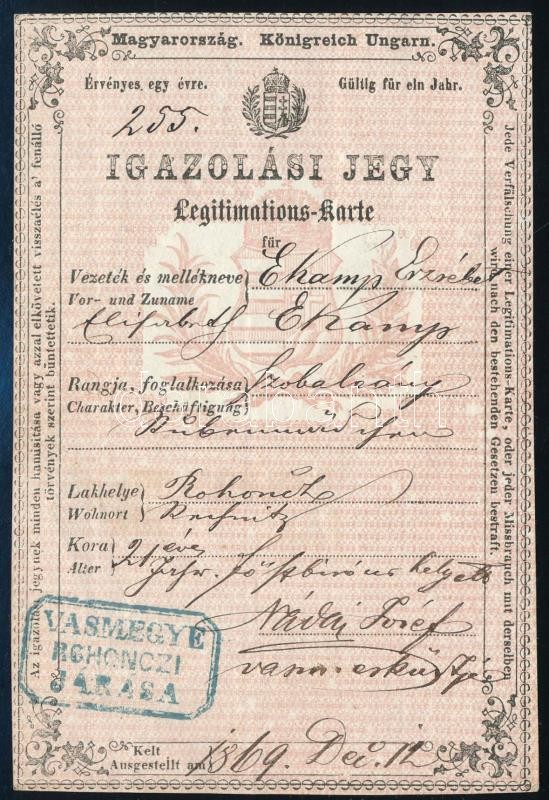 Magyarország. Königreich Ungarn.
Érvényes egy évre. Gültig für ein Jahr.
255.
IGAZOLÁSI JEGY
Legitimations-Karte
für
Vezeték és mellékneve Ekamp Erzsébet
Vor- und Zuname
Elisabeth Ekamp
Rangja, foglalkozása Szobaleány
Charakter, Beschäftigung
Stubenmädchen
Lakhelye Rohoncz
Wohnort Rechnitz
Kora 21 éves
Alter Jahr. főszbiró helyett
Nádaj József
VASMEGYE
ROHONCZI
JÁRÁSA
Kelt
Ausgestellt am 1869 Dec. 12
Az igazolási jegynek minden hamisitása vagy azzal elkövetett visszaélés a' fenálló
törvények szerint büntettetik.
Jede Verfälschung einer Legitimations-Karte, oder jeder Missbrauch mit derselben
wird nach den bestehenden Gesetzen bestraft.